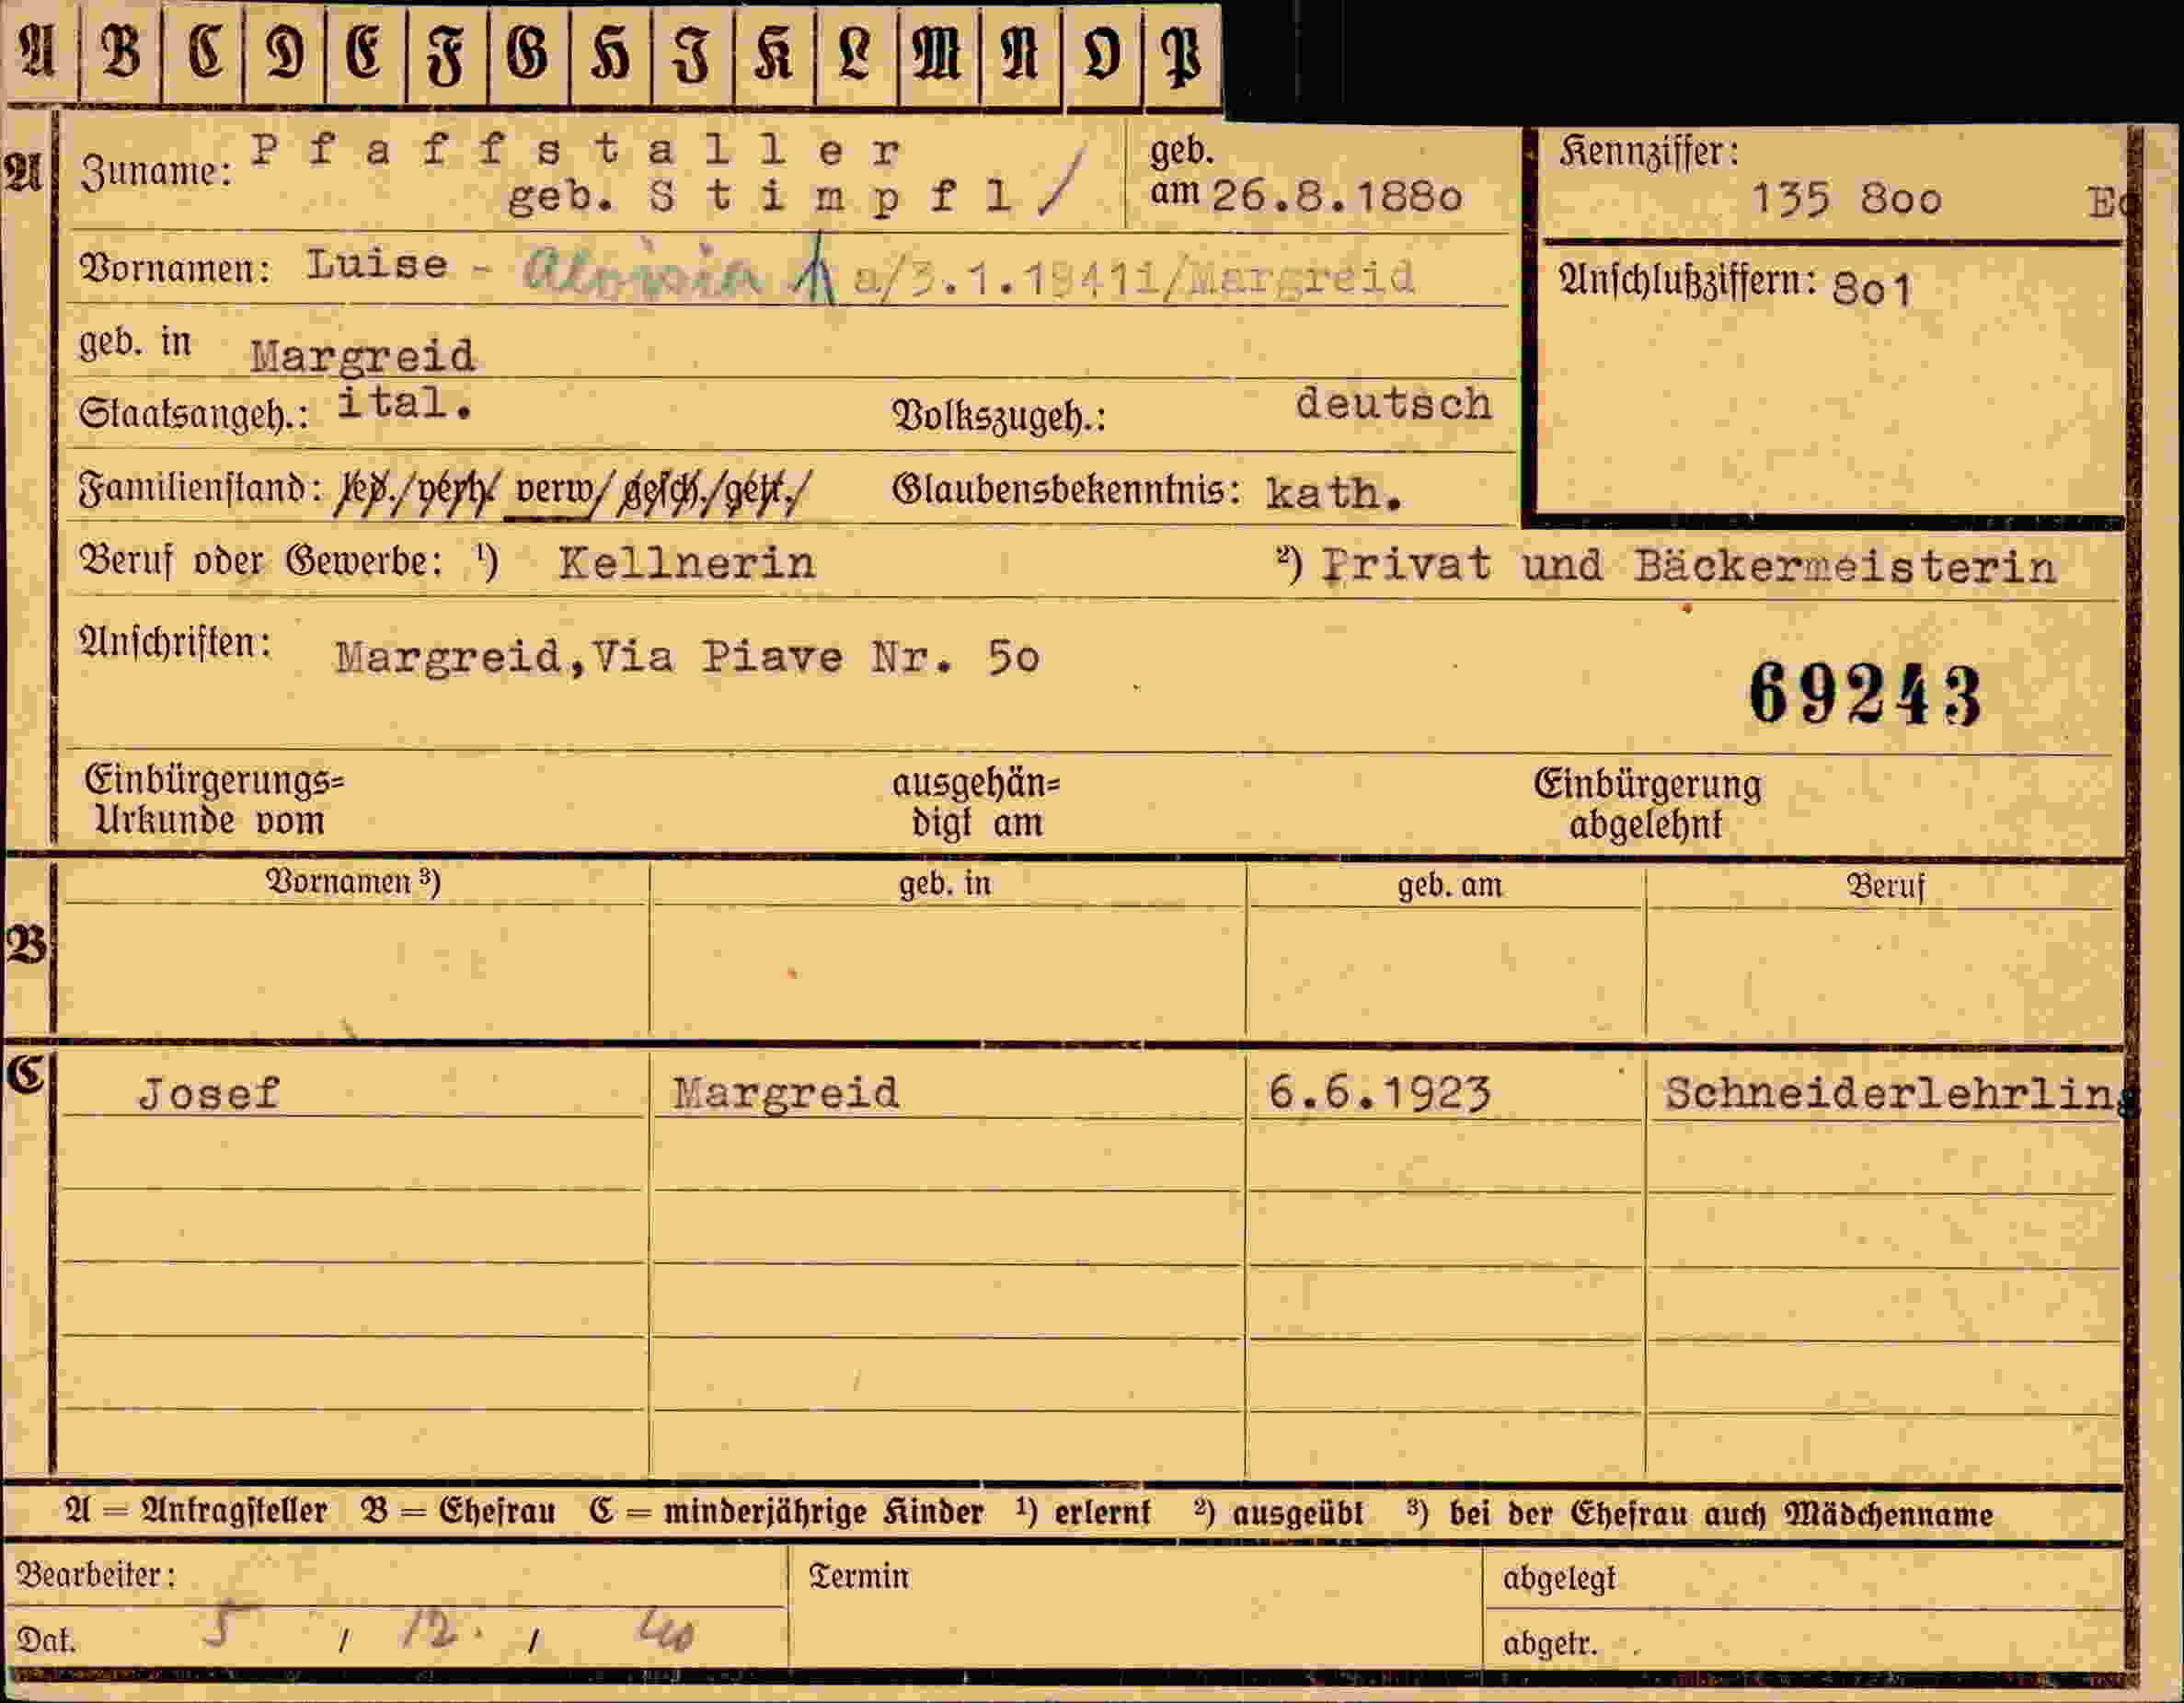 A B C D E F G H I K L M N O P
A Zuname: Pfaffstaller geb. Kennziffer:
geb. Stimpfl/ am 26.8.1880 135 800
Vornamen: Luise - Aloisia a/3.1.1941i/Margreid Anschlußziffern: 801
geb. in Margreid
Staatsangeh.: ital. Volkszugeh.: deutsch
Familienstand: led./verh/ verw/ gesch./getr./ Glaubensbekenntnis: kath.
Beruf oder Gewerbe: ¹) Kellnerin ²) Privat und Bäckermeisterin
Anschriften: Margreid,Via Piave Nr. 50
69243
Einbürgerungs= ausgehän= Einbürgerung
Urkunde vom digt am abgelehnt
Vornamen ³) geb. in geb. am Beruf
B
C Josef Margreid 6.6.1923 Schneiderlehrling
A = Antragsteller B = Ehefrau C = minderjährige Kinder ¹) erlernt ²) ausgeübt ³) bei der Ehefrau auch Mädchenname
Bearbeiter: Termin abgelegt
Dat. 5 / 12. / 40 abgetr.